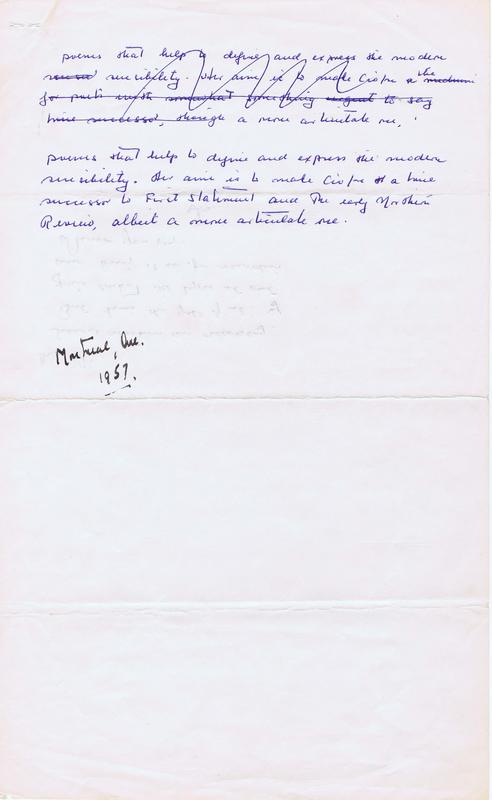 poems that help to define and express the modern
sensibility. Her aim is to make Civ/n a the medium
for poets with somewhat something urgent to say
true successor, though a more articulate one,
poems that help to define and express the modern
sensibility. Her aim is to make Civ/n a true
successor to First Statement and The early Northern
Review, albeit a more articulate one.
Montreal, Que.
1957.